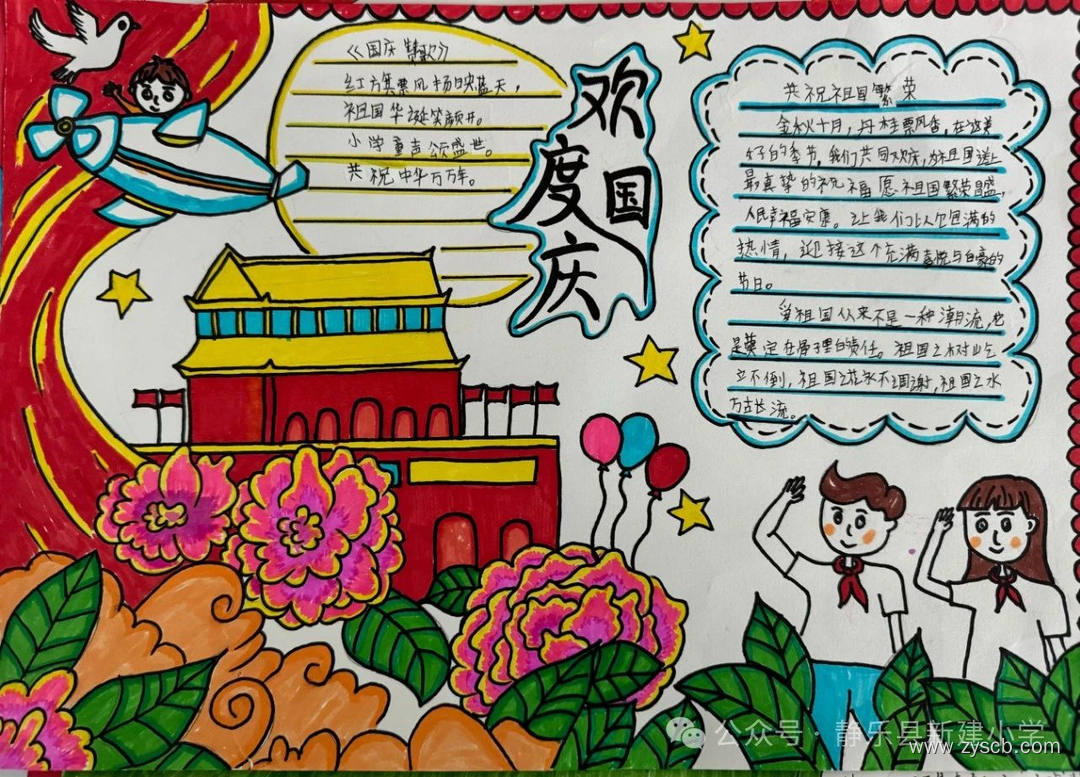 《国庆赞歌》
红方旗飘风扬映蓝天，
祖国华诞笑颜开。
小学童声颂盛世。
共祝中华万万年。
欢度国庆
共祝祖国繁荣
金秋十月，丹桂飘香，在这美
好的季节，我们共同欢庆，为祖国送上
最真挚的祝福愿祖国繁荣昌盛，
人民幸福安康。让我们以饱满的
热情，迎接这个充满喜悦与自豪的
节日。
爱祖国从来不是一种潮流，它
是奠定在骨子里的责任。祖国之树屹
立不倒，祖国之花永不凋谢，祖国之水
万古长流。
公众号·静乐县新建小学
www.zyscb.com